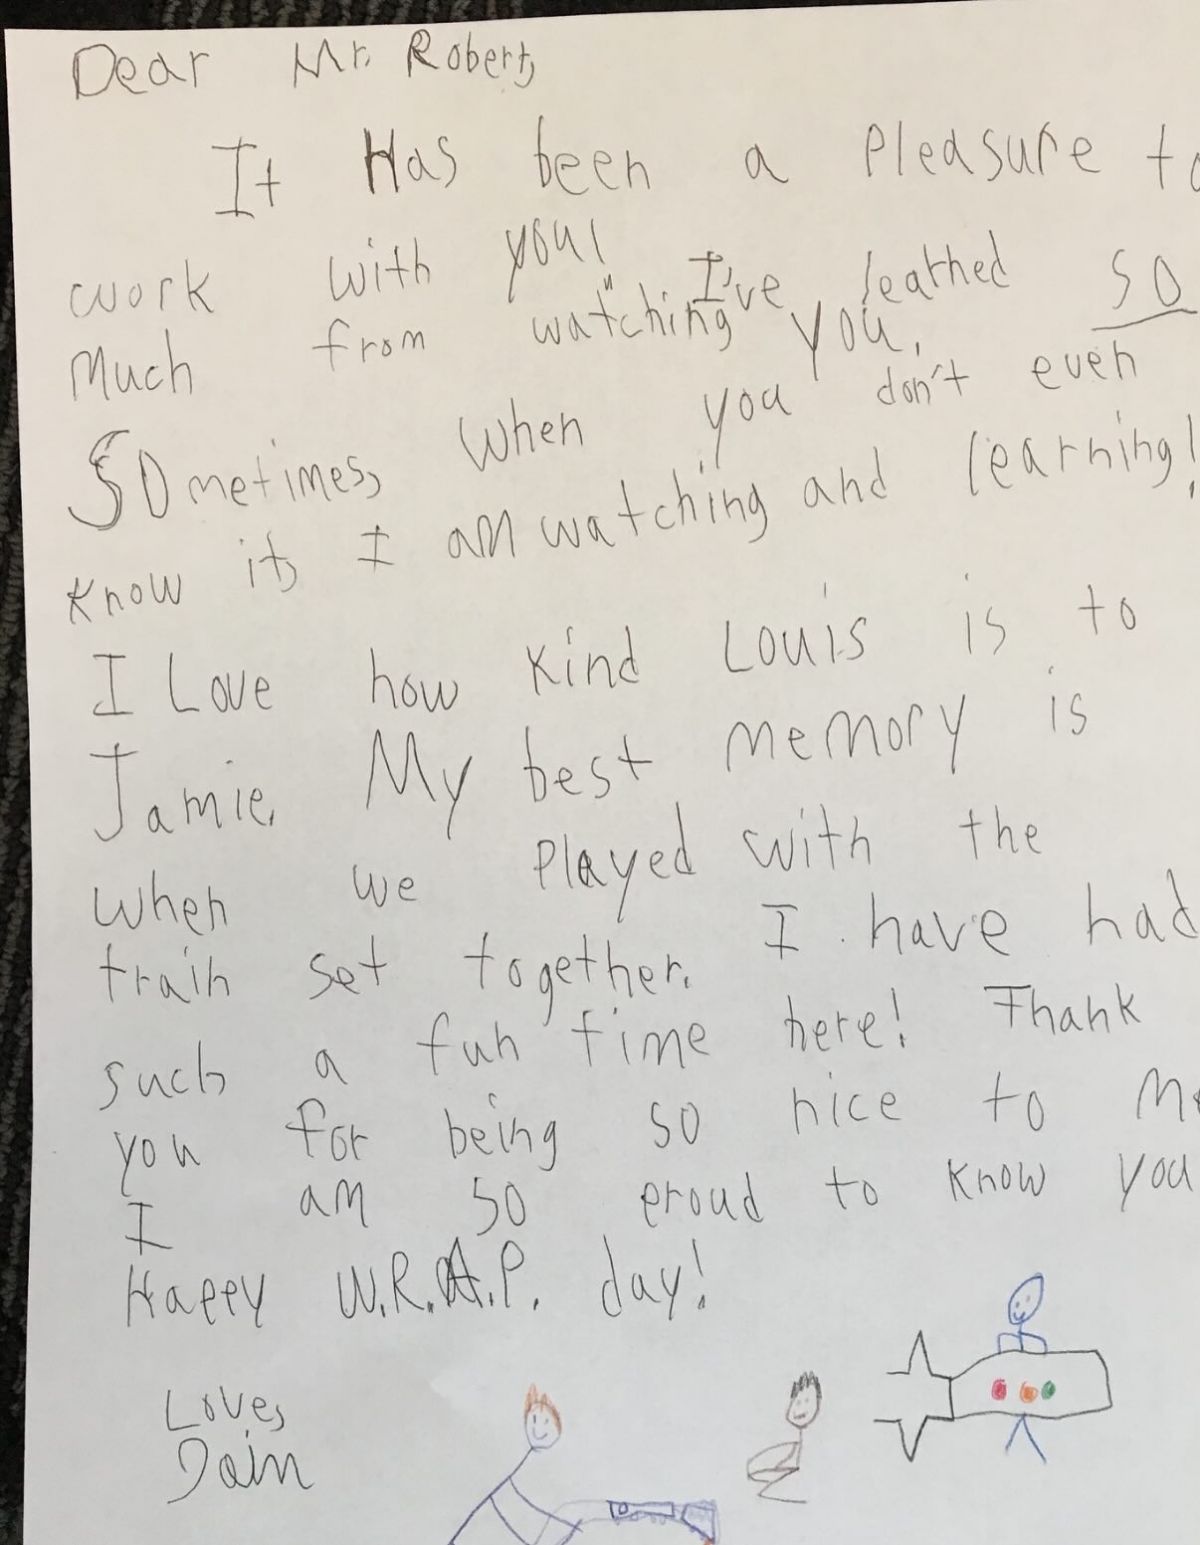 Dear Mr. Robert,
It Has been a Pleasure to
work with you! I've learned so
Much from "watching" you.
SOmetimes, when you don't even
know it, I am watching and learning!
I Love how kind Louis is to
Jamie. My best memory is
when we Played with the
train set together. I have had
such a fun time here! Thank
you for being so nice to Me
I am so proud to know you
Happy W.R.A.P. day!
Love,
Dain